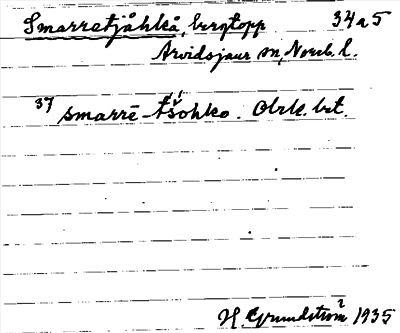 Smarretjåhkå, bergtopp 34 a 5
Arvidsjaur sn, Norrb. l.
37 smarrē-tšohko. Obrk. bet.
H. Grundström 2 1935